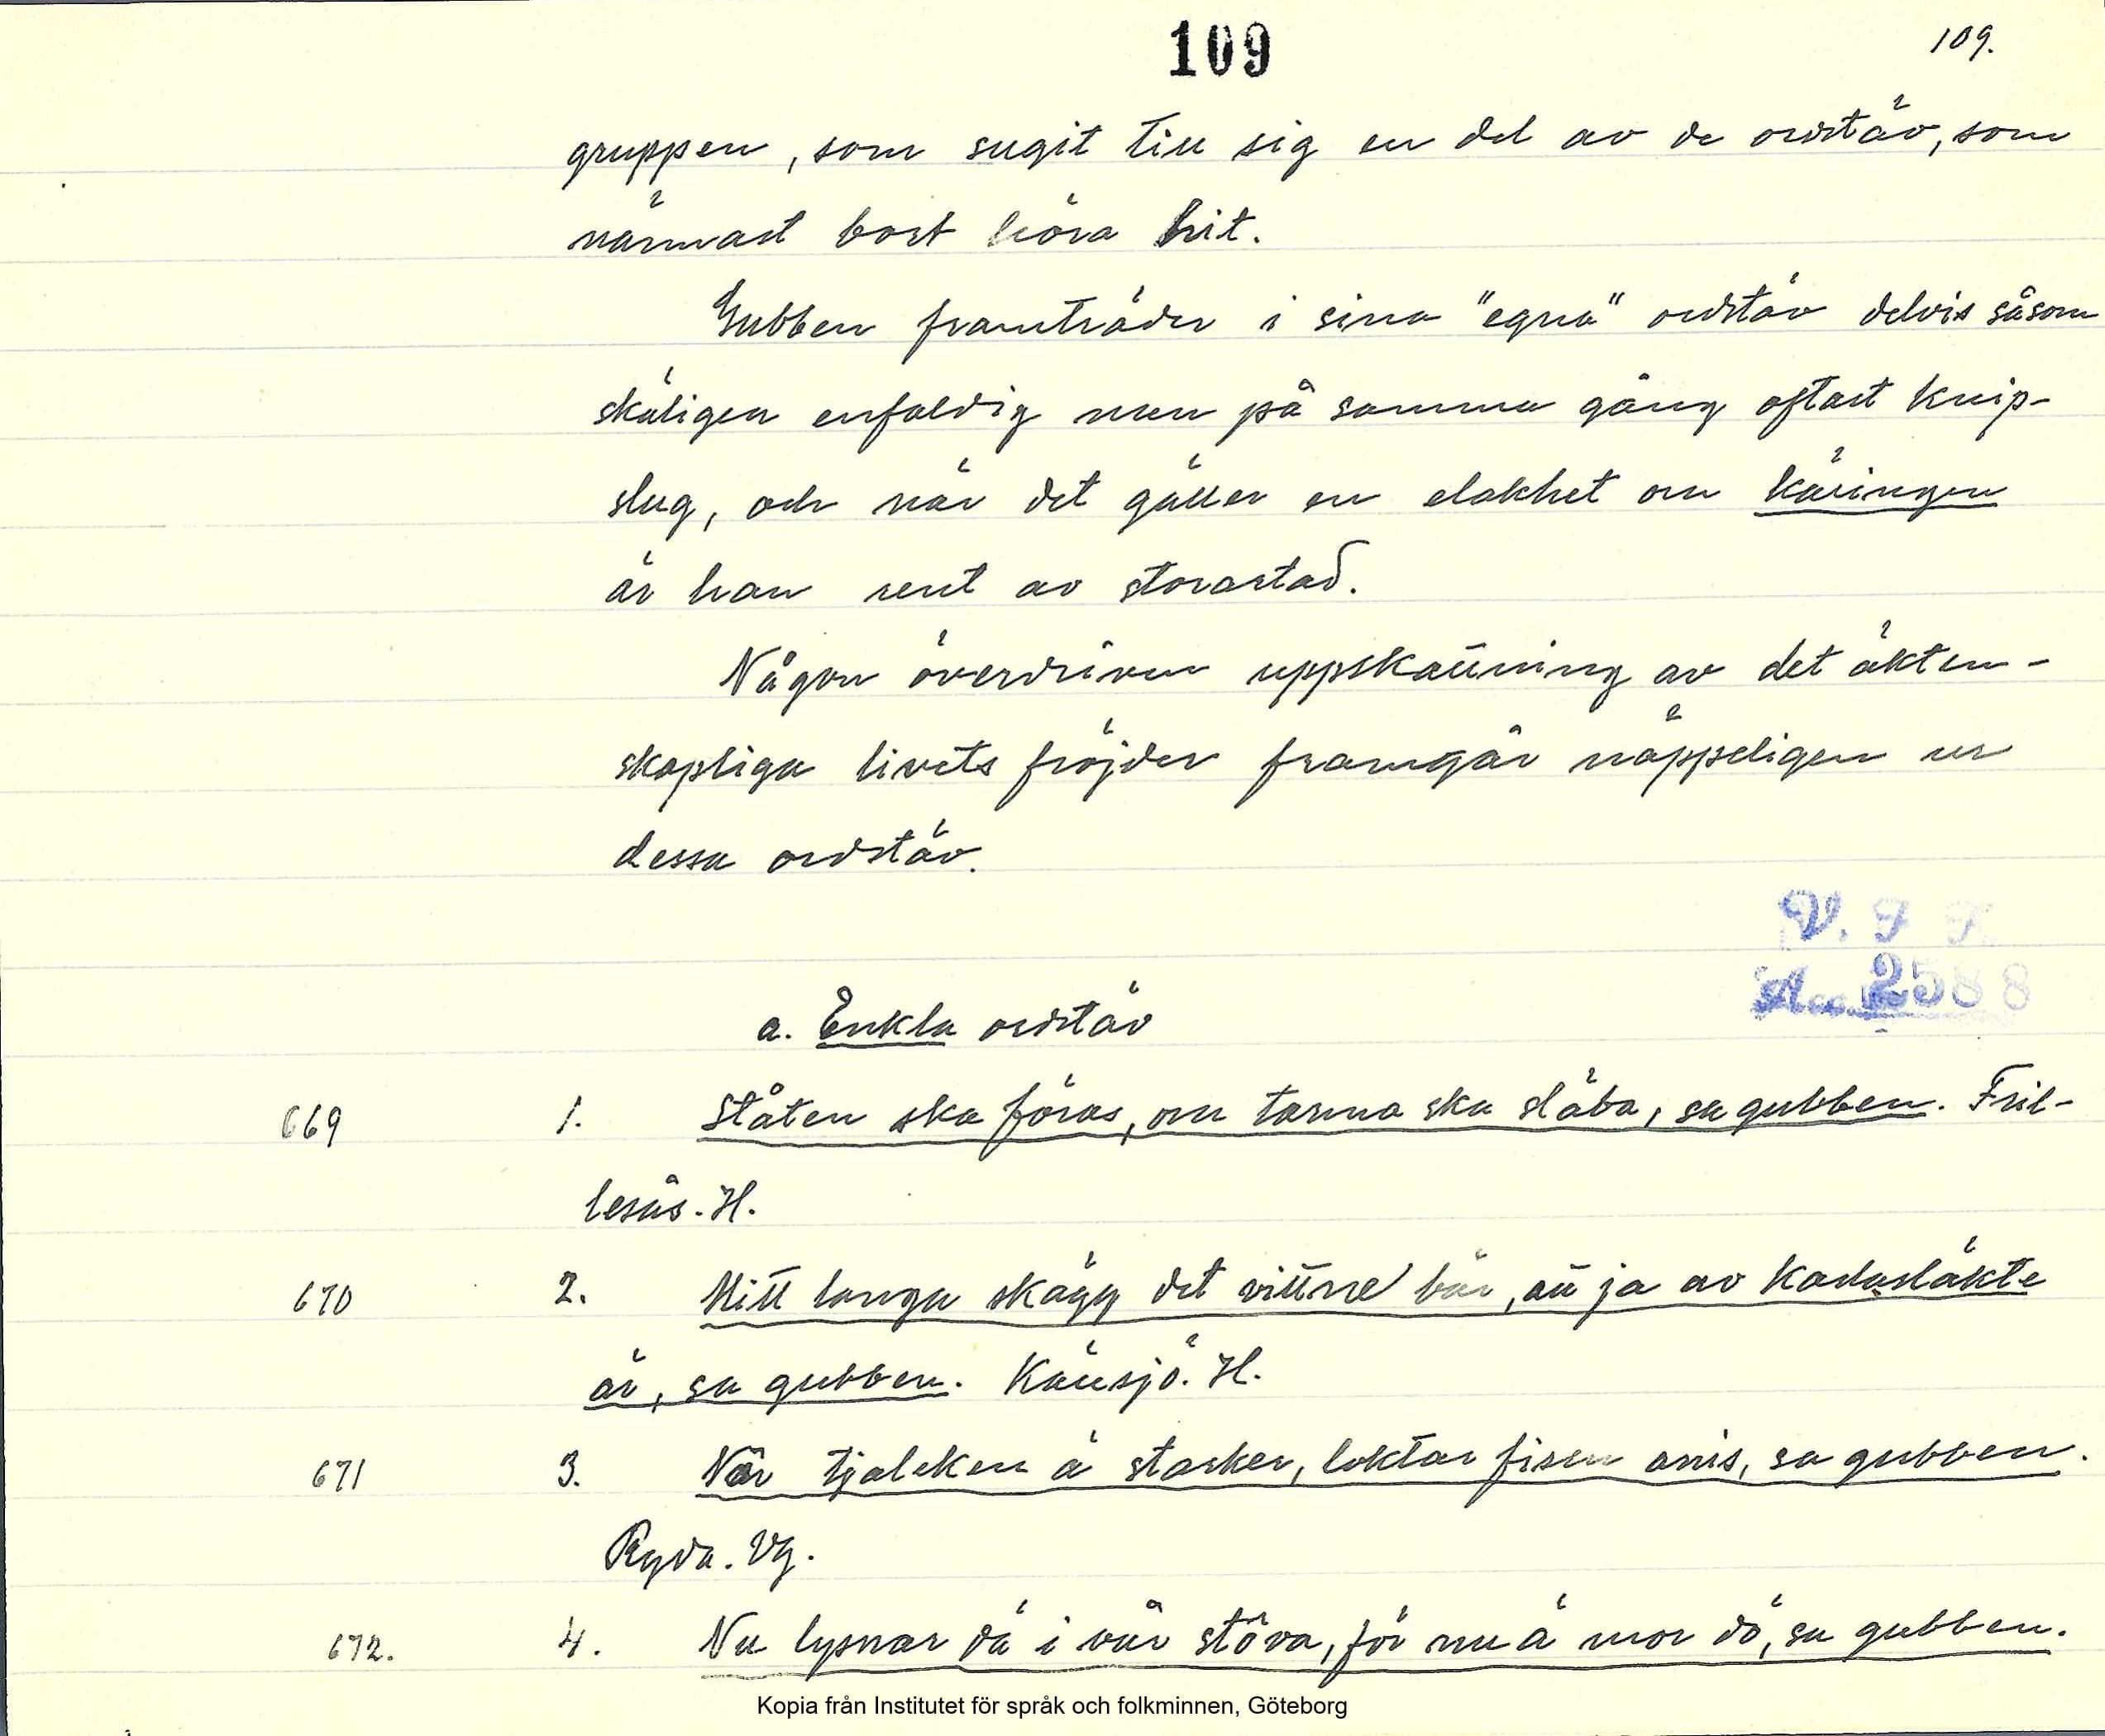 109
109.
gruppen, som sugit till sig en del av de ordstäv, som
närmast bort höra hit.
Gubben framträder i sina "egna" ordstäv delvis såsom
skäligen enfaldig men på samma gång oftast knip-
slug, och när det gäller en elakhet om käringen
är han rent av storartad.
Någon överdriven uppskattning av det äkten-
skapliga livets fröjder framgår näppeligen ur
dessa ordstäv.
V. F. F.
Acc. 2588
a. Enkla ordstäv
669 1. Ståten ska föras, om tarma ska släba, sa gubben. Fril-
lesås. H.
670 2. Mitt långa skägg det vittne bär, att ja av Karlasläkte
är, sa gubben. Kättsjö. H.
671 3. När tjaleken ä starker, loktar fisen anis, sa gubben.
Ryda. Vg.
672. 4. Nu lysnar dä i vår stöva, för nu ä mor dö, sa gubben.
Kopia från Institutet för språk och folkminnen, Göteborg